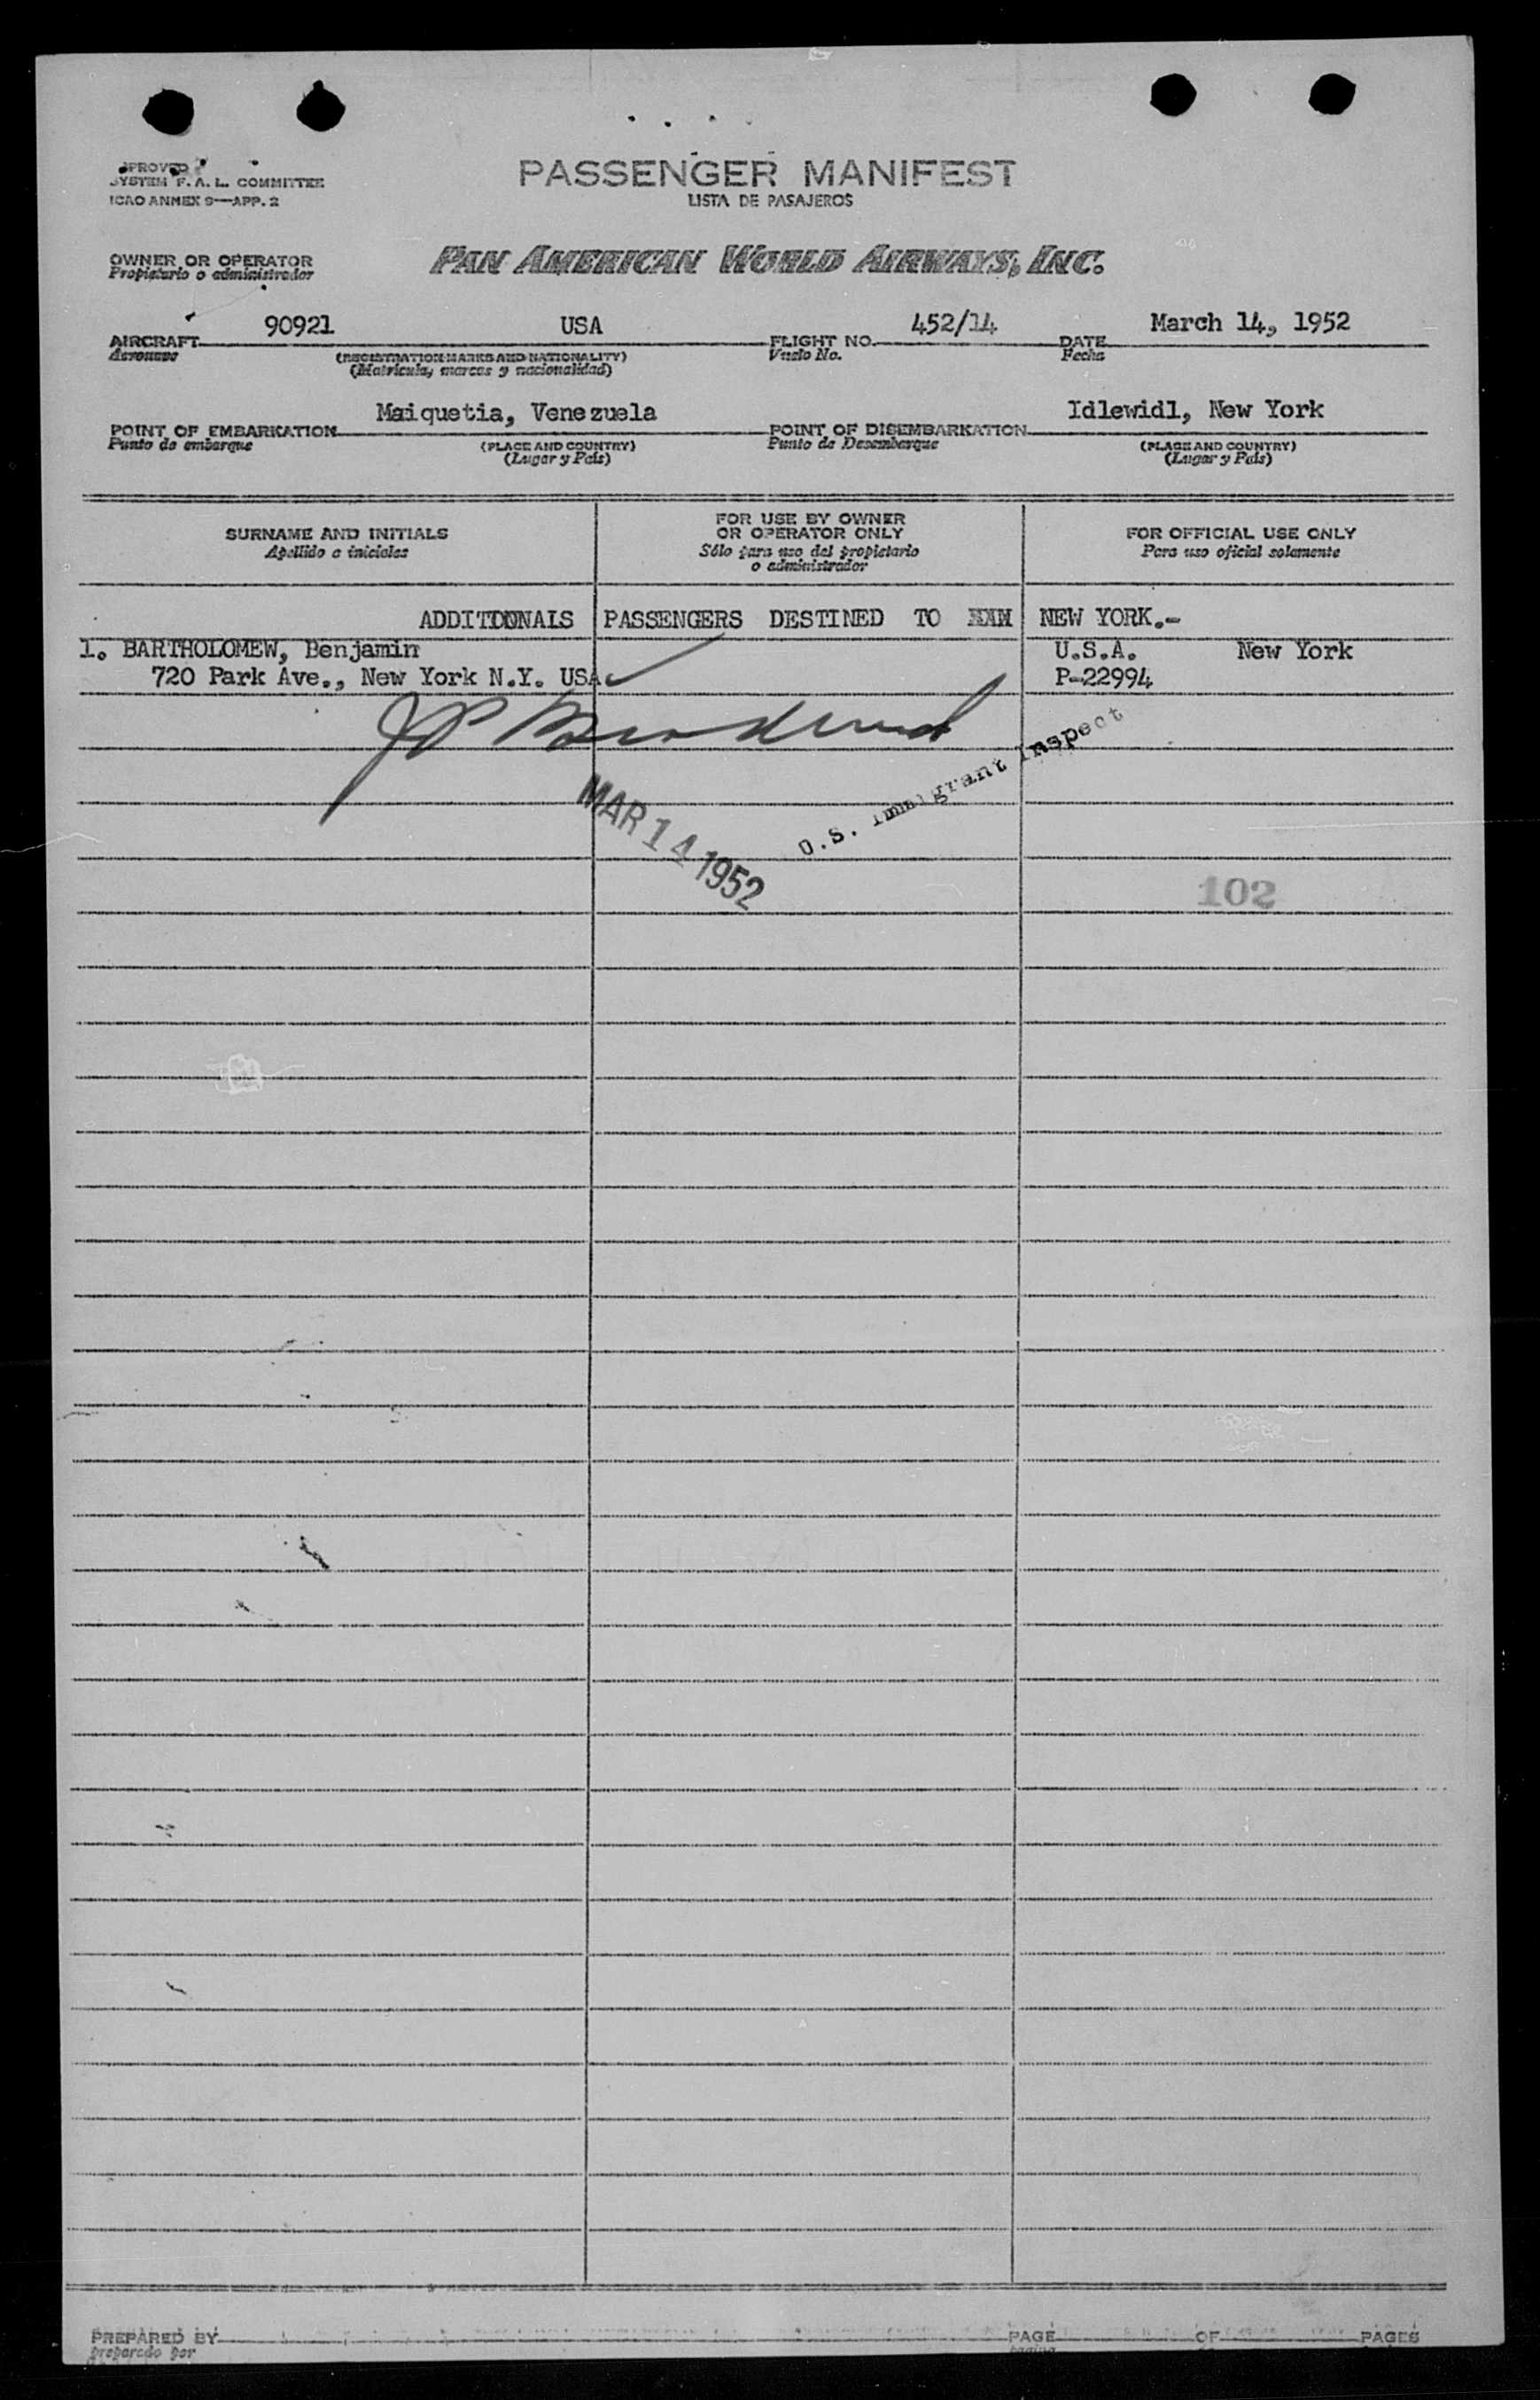 APPROVED
SYSTEM F.A.L. COMMITTEE
ICAO ANNEX 9—APP. 2
PASSENGER MANIFEST
LISTA DE PASAJEROS
OWNER OR OPERATOR
Propietario o administrador
PAN AMERICAN WORLD AIRWAYS, INC.
AIRCRAFT 90921 USA FLIGHT NO. 452/14 DATE March 14, 1952
Aeronave (REGISTRATION MARKS AND NATIONALITY) Vuelo No. Fecha
(Matricula, marcas y nacionalidad)
POINT OF EMBARKATION Maiquetia, Venezuela POINT OF DISEMBARKATION Idlewidl, New York
Punto de embarque (PLACE AND COUNTRY) Punto de Desembarque (PLACE AND COUNTRY)
(Lugar y País) (Lugar y País)
SURNAME AND INITIALS
Apellido e iniciales
FOR USE BY OWNER
OR OPERATOR ONLY
Sólo para uso del propietario
o administrador
FOR OFFICIAL USE ONLY
Para uso oficial solamente
ADDITIONALS PASSENGERS DESTINED TO NEW YORK.-
1. BARTHOLOMEW, Benjamin U.S.A. New York
720 Park Ave., New York N.Y. USA P-22994
U.S. Immigrant Inspect
MAR 14 1952
102
PREPARED BY PAGE OF PAGES
preparado por pagina